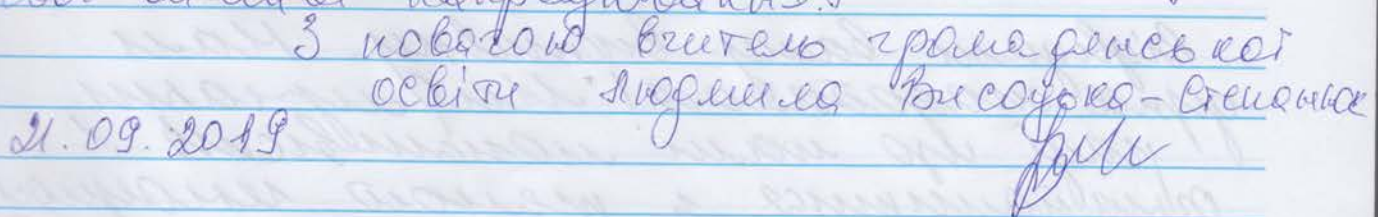 З повагою вчитель громадянської
освіти Людмила Висоцька-Степанюк
21.09.2019